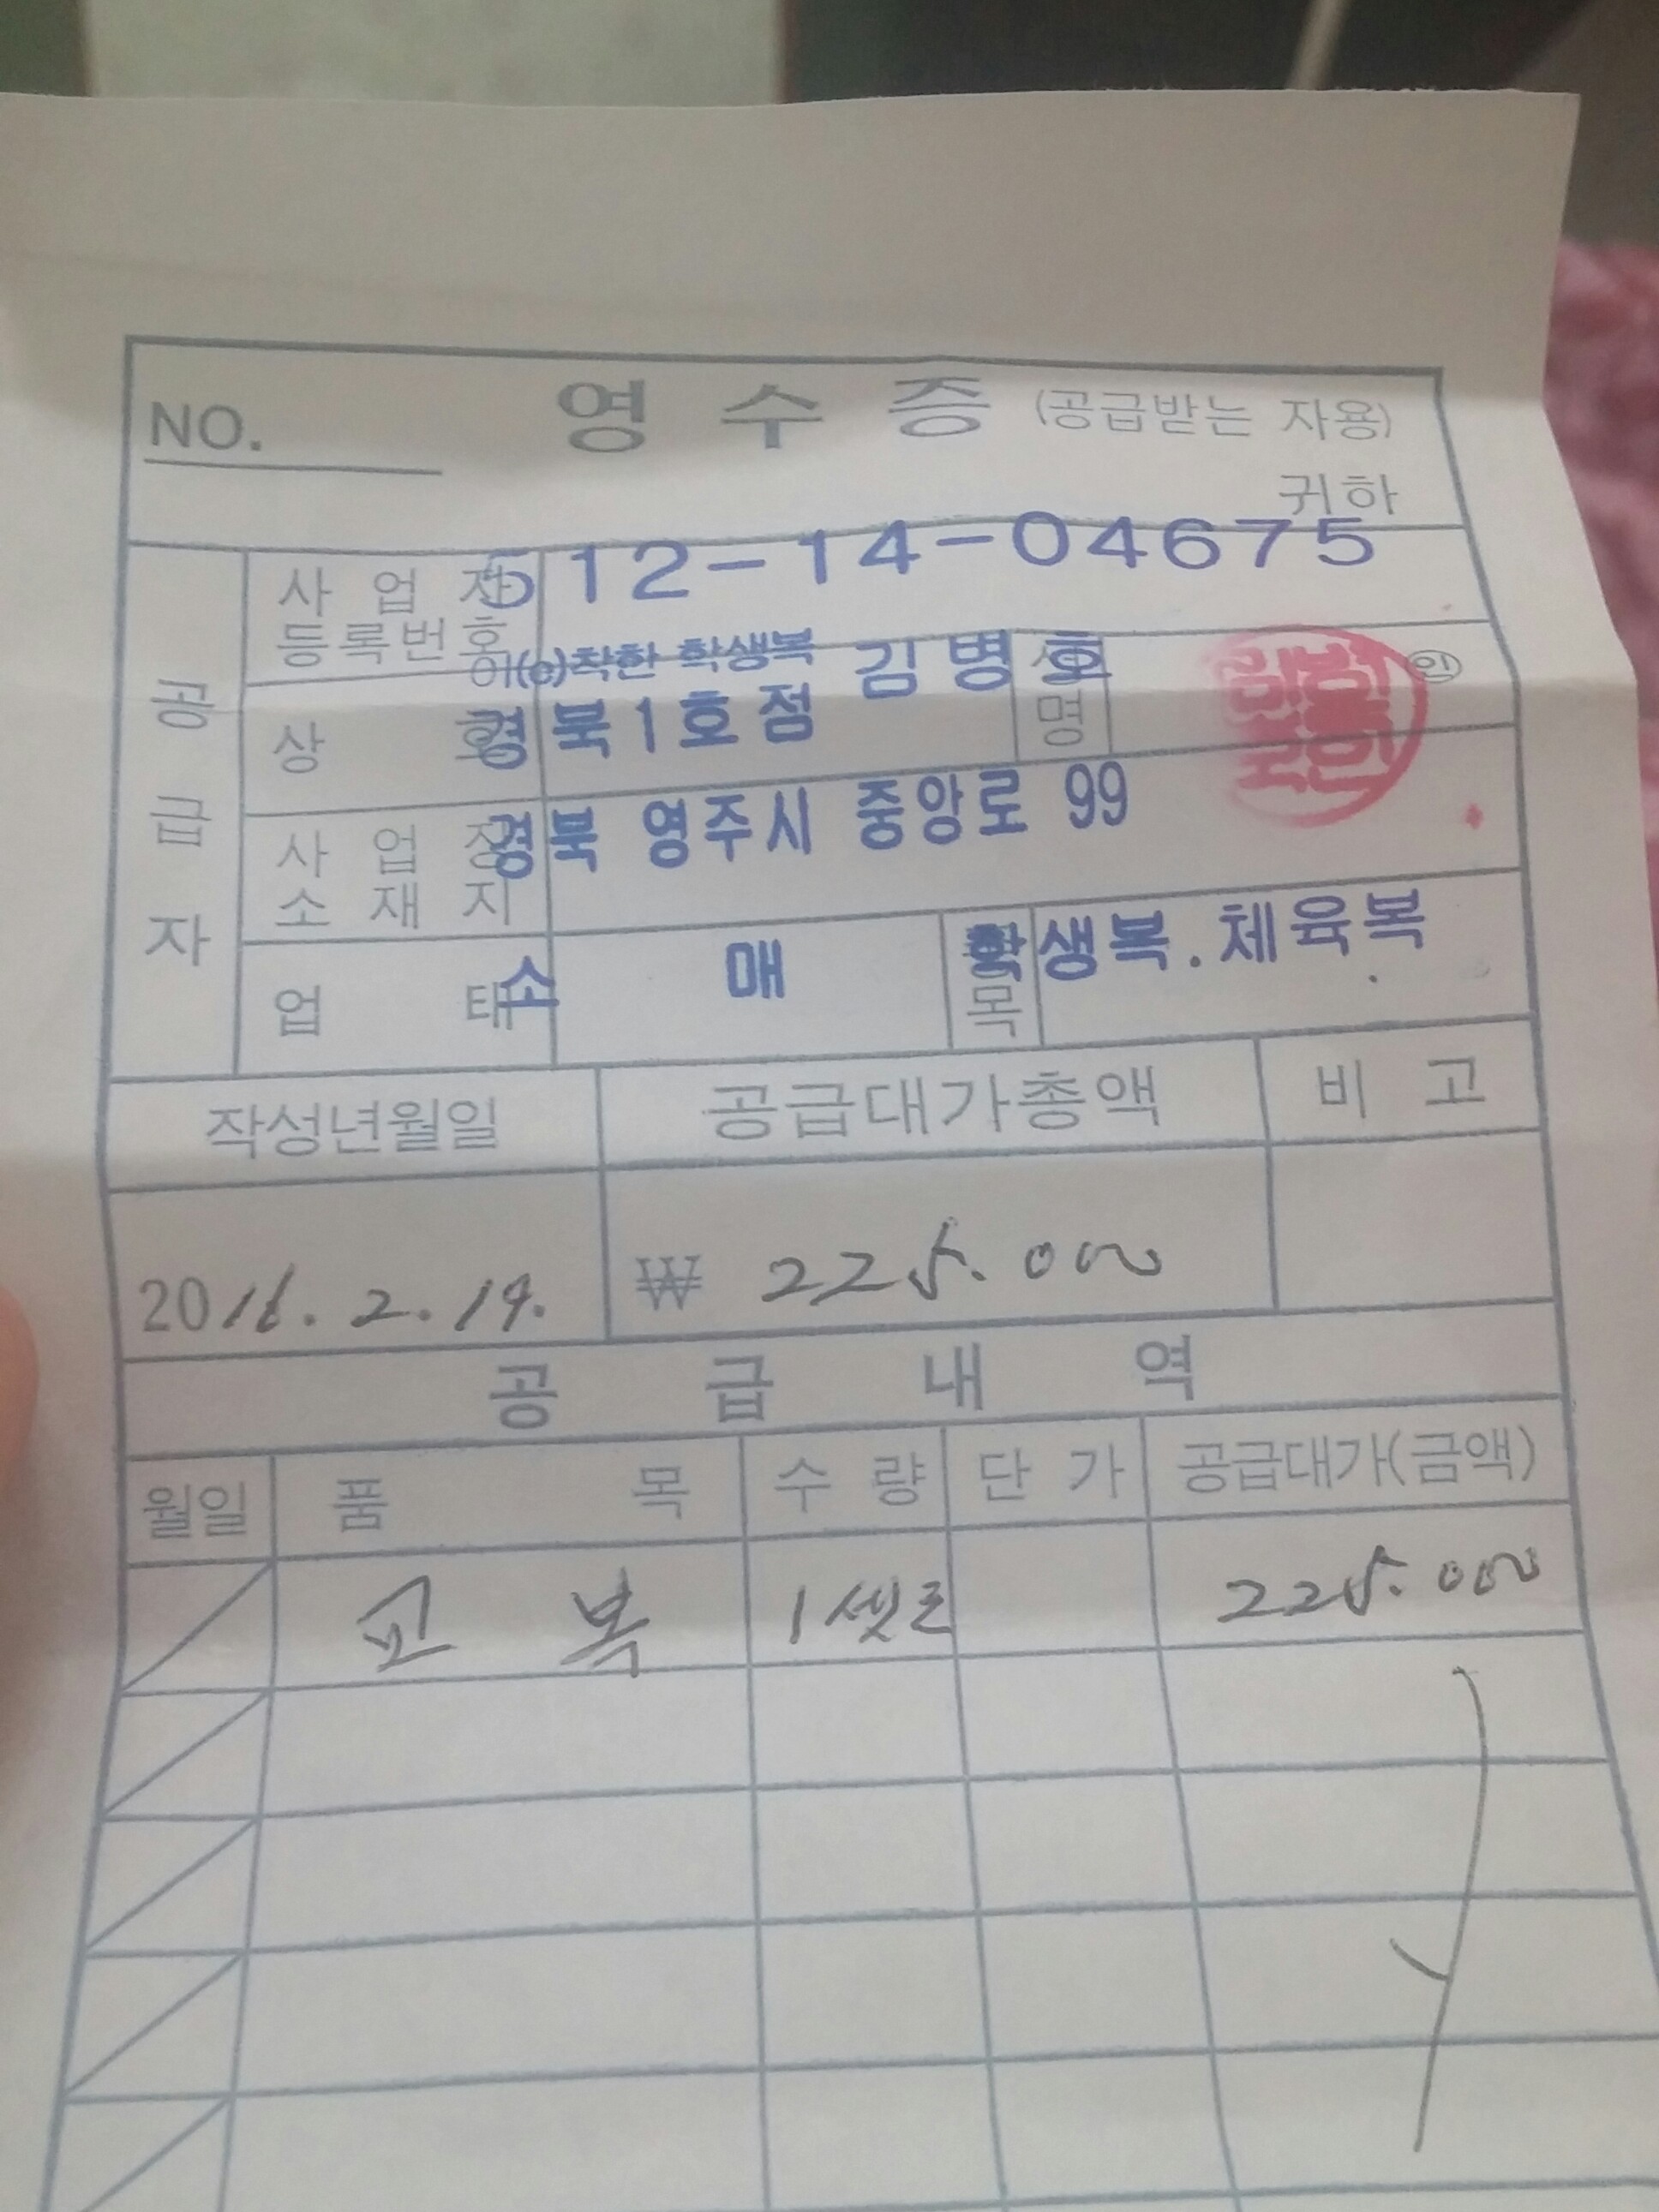 NO. 영 수 증 (공급받는 자용)
귀하
공급자
사 업 자 등록번호 512-14-04675
이(e)착한 학생복
상 호 경북1호점 성명 김병호 ㊞
사 업 장 소 재 지 경북 영주시 중앙로 99
업 태 소 매 종목 학생복.체육복
작성년월일 공급대가총액 비 고
2016. 2. 19. ₩ 225.000
공 급 내 역
월일 품 목 수 량 단 가 공급대가(금액)
교 복 1셋트 225.000